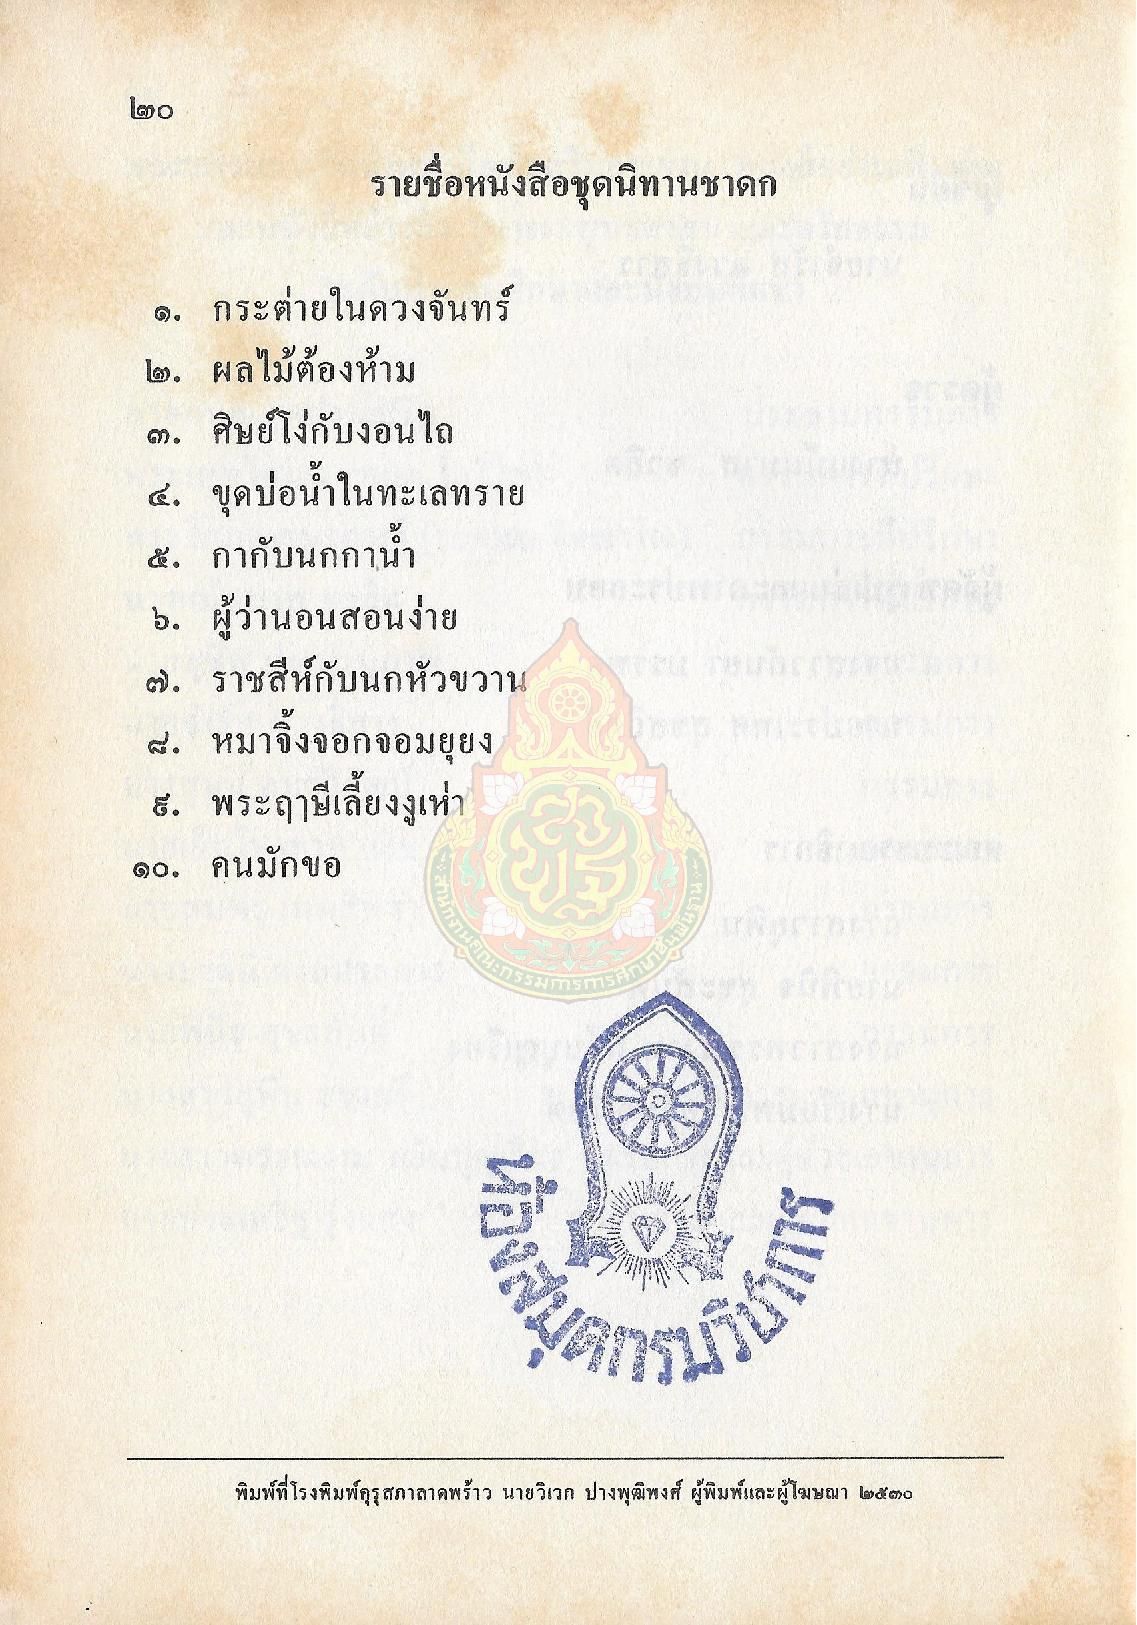 ๒๐
รายชื่อหนังสือชุดนิทานชาดก
๑. กระต่ายในดวงจันทร์
๒. ผลไม้ต้องห้าม
๓. ศิษย์โง่กับงอนไถ
๔. ขุดบ่อน้ำในทะเลทราย
๕. กากับนกกาน้ำ
๖. ผู้ว่านอนสอนง่าย
๗. ราชสีห์กับนกหัวขวาน
๘. หมาจิ้งจอกจอมยุยง
๙. พระฤๅษีเลี้ยงงูเห่า
๑๐. คนมักขอ
สำนักงานคณะกรรมการการศึกษาขั้นพื้นฐาน
ห้องสมุดกรมวิชาการ
พิมพ์ที่โรงพิมพ์คุรุสภาลาดพร้าว นายวิเวก ปางพุฒิพงศ์ ผู้พิมพ์และผู้โฆษณา ๒๕๓๐